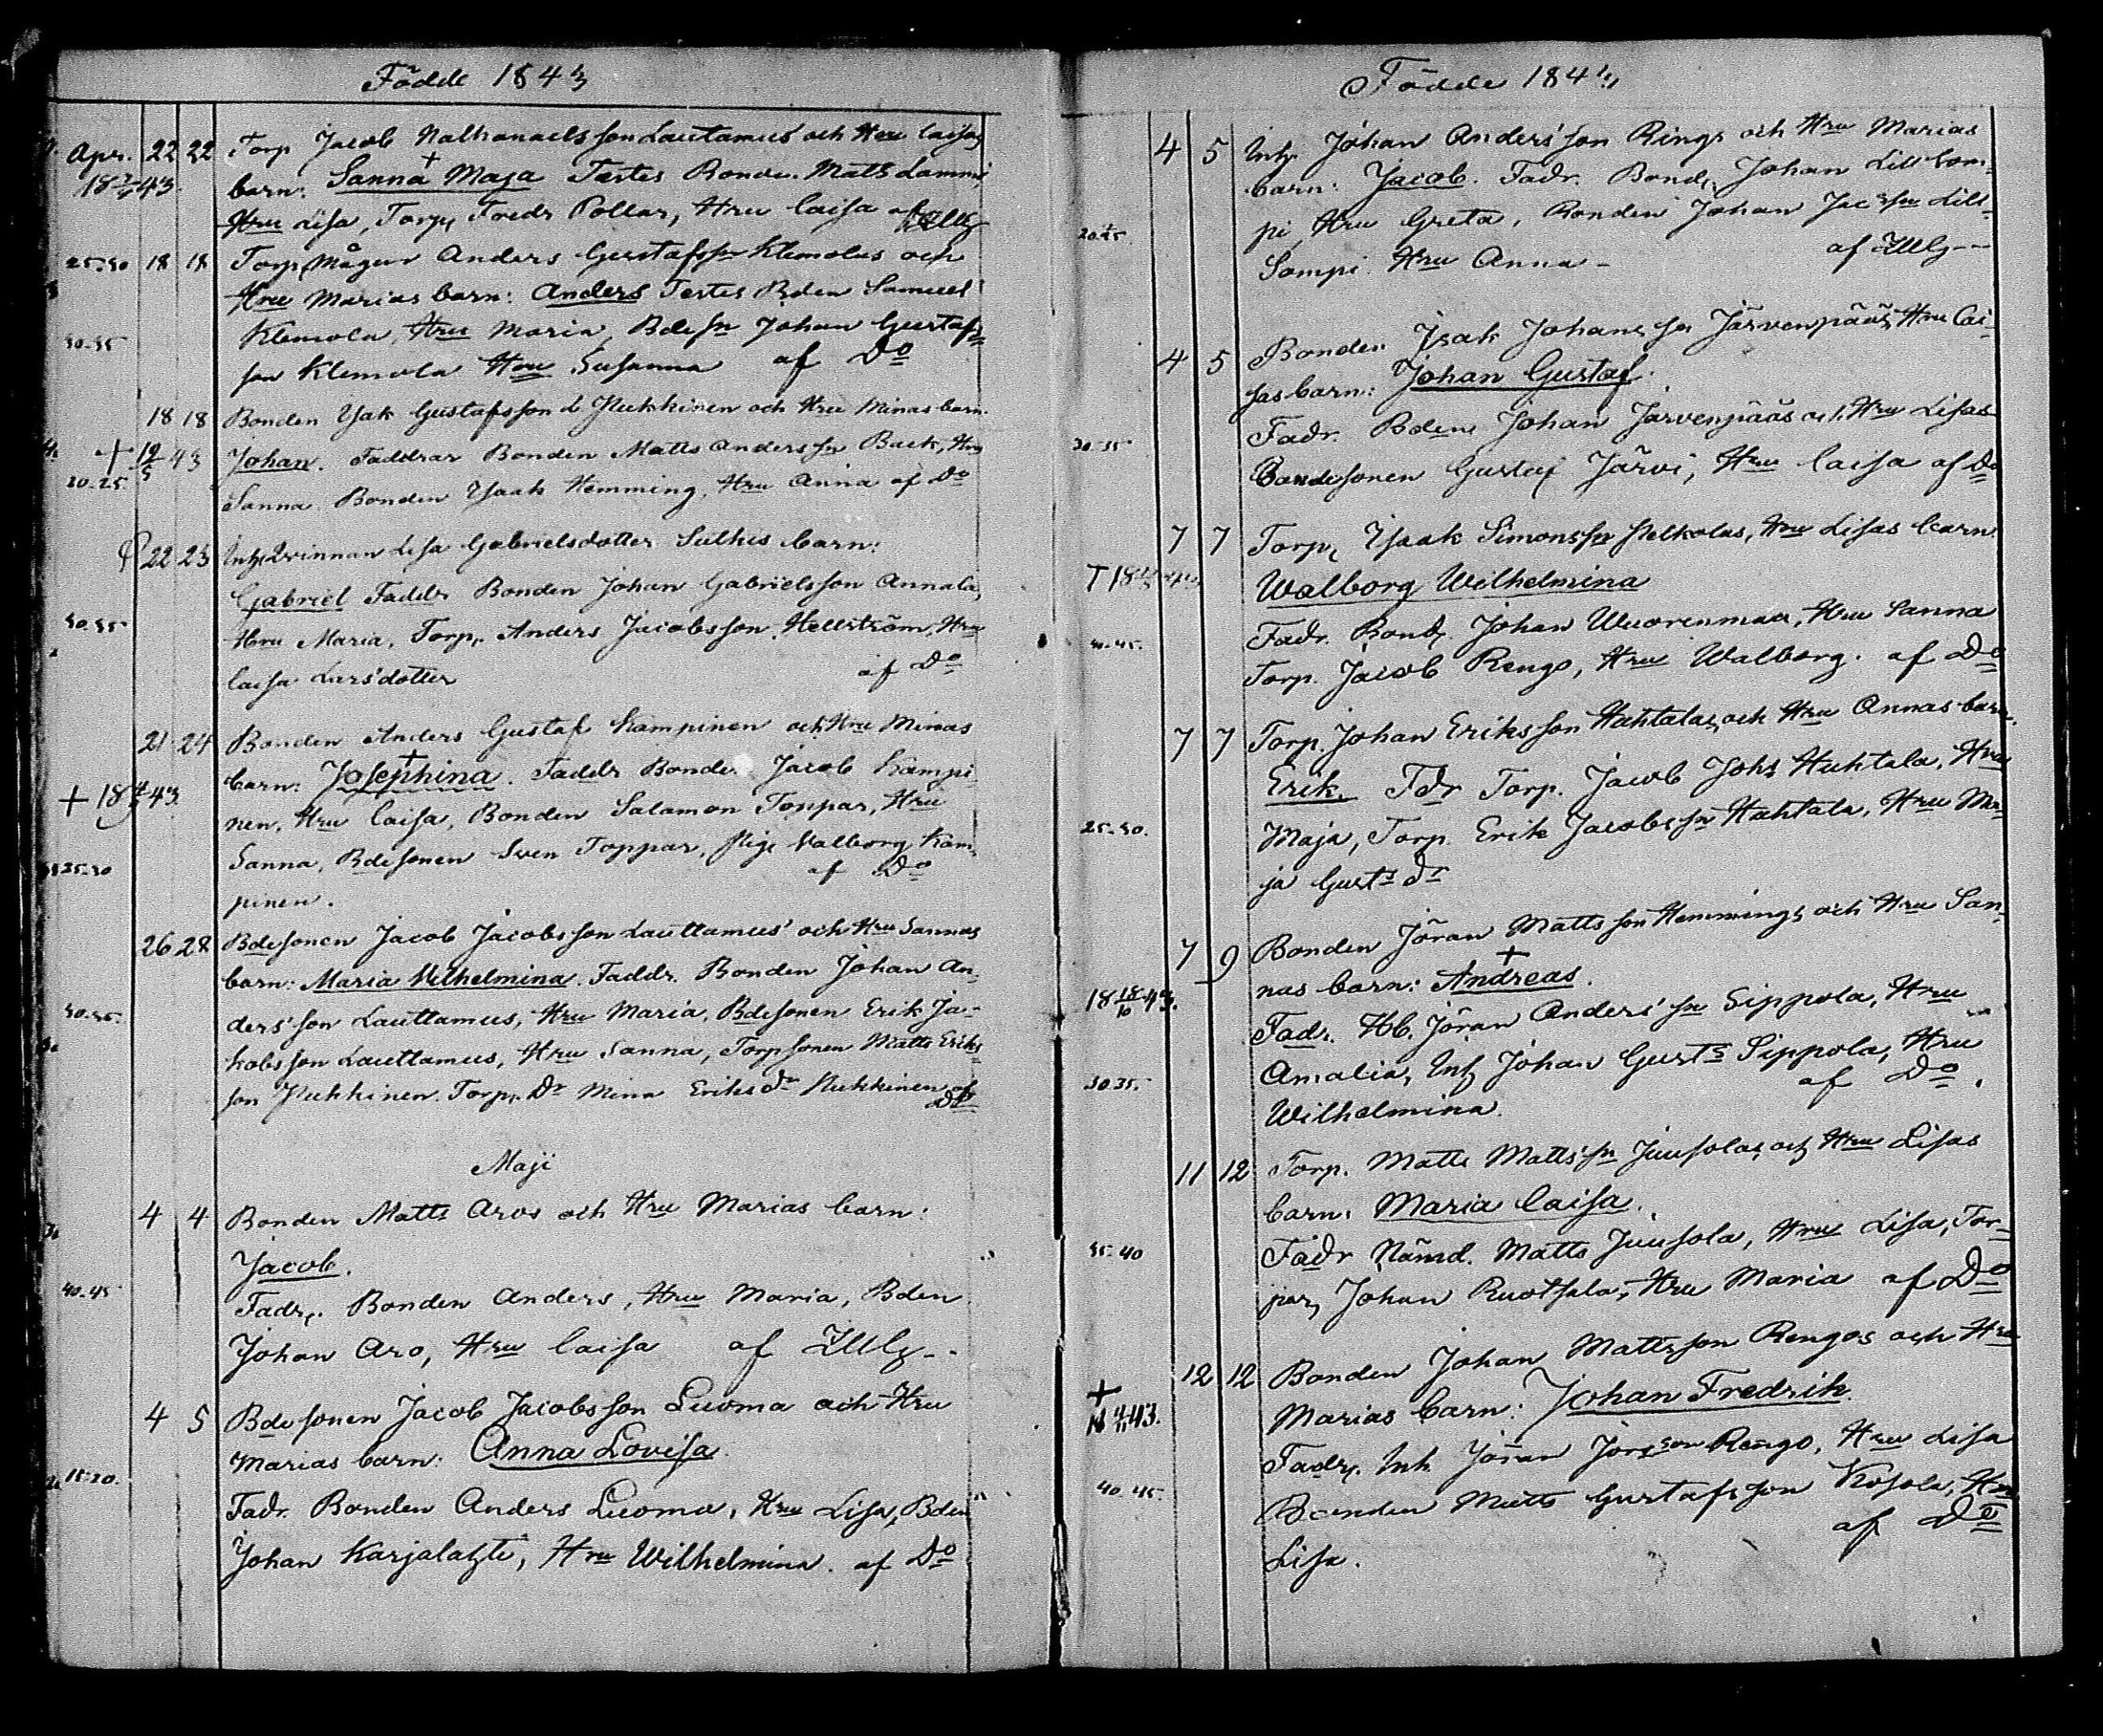 Födde 1843
Apr. 22 22 Torp Jacob Nathanaelsson Lautamus och Hru Caisas
barn: Sanna Maja Testes Bonden Matts Lammi,
Hru Lisa, Torp, Fredr Pollar, Hru Caisa af
25-30 18 18 Torp, Mågen Anders Gustafssn Klemolas och
Hru Marias barn: Anders Testes Bden Samuel
30-35 Klemola, Hru Maria, Bdesn Johan Gustafs-
son Klemola Hru Susanna af Do
18 18 Bonden Isak Gustafsson Hukkinen och Hru Minas barn.
+ 19/5 43 Johan. Faddrar Bonden Matts Anderssn Back, Hru
20-25 Sanna Bonden Isaak Hemming, Hru Anna af Do
22 23 Inh. Qvinnan Lisa Gabrielsdotter Sulkis barn:
Gabriel Faddr Bonden Johan Gabrielsson Annala,
30-35 Hru Maria, Torp, Anders Jacobsson Hellström, Hru
Caisa Larsdotter af Do
21 24 Bonden Anders Gustaf Kampinen och Hru Minas
barn: Josephina. Faddr Bonden Jacob Kampi
+ 18 43. nen, Hru Caisa, Bonden Salamon Toppar, Hru
Sanna, Bdesonen Sven Toppar, Pig. Valborg Kam-
25-30 af Do
pinen.
26 28 Bdesonen Jacob Jacobsson Lauttamus och Hru Sannas
barn: Maria Wilhelmina. Faddr. Bonden Johan An-
30-35. dersson Lauttamus, Hru Maria, Bdesonen Erik Ja-
kobsson Lauttamus, Hru Sanna, Torpsonen Matts Eriks
son Hukkinen. Torp. Dr Mina Eriksdr Hukkinen af
Do
Maji
4 4 Bonden Matts Aros och Hru Marias barn:
Jacob.
40-45 Fadr. Bonden Anders, Hru Maria, Bden
Johan Aro, Hru Caisa af
4 5 Bdesonen Jacob Jacobsson Luoma och Hru
Marias barn: Anna Lovisa
15-20. Fadr. Bonden Anders Luoma, Hru Lisa, Bden
Johan Karjalahti, Hru Wilhelmina. af Do
Födde 184
4 5 Inh. Johan Andersson Rings och Hru Marias
barn: Jacob. Fadr. Bond, Johan Lill Som-
pi, Hru Greta, Bonden Johan Jacssn Lill-
Sompi. Hru Anna - af
4 5 Bonden Isak Johanssn Järvenpääs, Hru Cai-
sas barn: Johan Gustaf.
30-35 Fadr. Bdens Johan Järvenpääs och Hru Lisas
Bondesonen Gustaf Järvi, Hru Caisa af Do
7 7 Torp, Isaak Simonssn Pelkolas, Hru Lisas barn.
Walborg Wilhelmina
40-45. Fadr. Bond. Johan Wuorenmaa, Hru Sanna
Torp. Jacob Rengo, Hru Walborg. af Do
7 7 Torp. Johan Eriksson Hahtalas och Hru Annas barn.
Erik. Fdr Torp. Jacob Johs Huhtala, Hru
25-30. Maja, Torp. Erik Jacobssn Hahtala, Hru Ma-
ja Gusts dr
7 9 Bonden Jöran Mattsson Hemmings och Hru San-
nas barn: Andreas.
18 18/10 43. Fadr. Hb. Jöran Anderssn Sippola, Hru
30-35. Amalia, Inh Johan Gusts Sippola, Hru
Wilhelmina. af Do
11 12 Torp. Matts Mattssn Juusolas och Hru Lisas
barn: Maria Caisa.
35-40 Fadr Nämd. Matts Juusola, Hru Lisa, Tor-
par, Johan Ruotsala, Hru Maria af Do
12 12 Bonden Johan Mattsson Rengos och Hru
+ 18 4/11 43. Marias barn: Johan Fredrik
Fadr. Inh Jöran Jörsson Rengo, Hru Lisa
40-45. Bonden Matts Gustafsson Kosola, Hru
Lisa. af Do